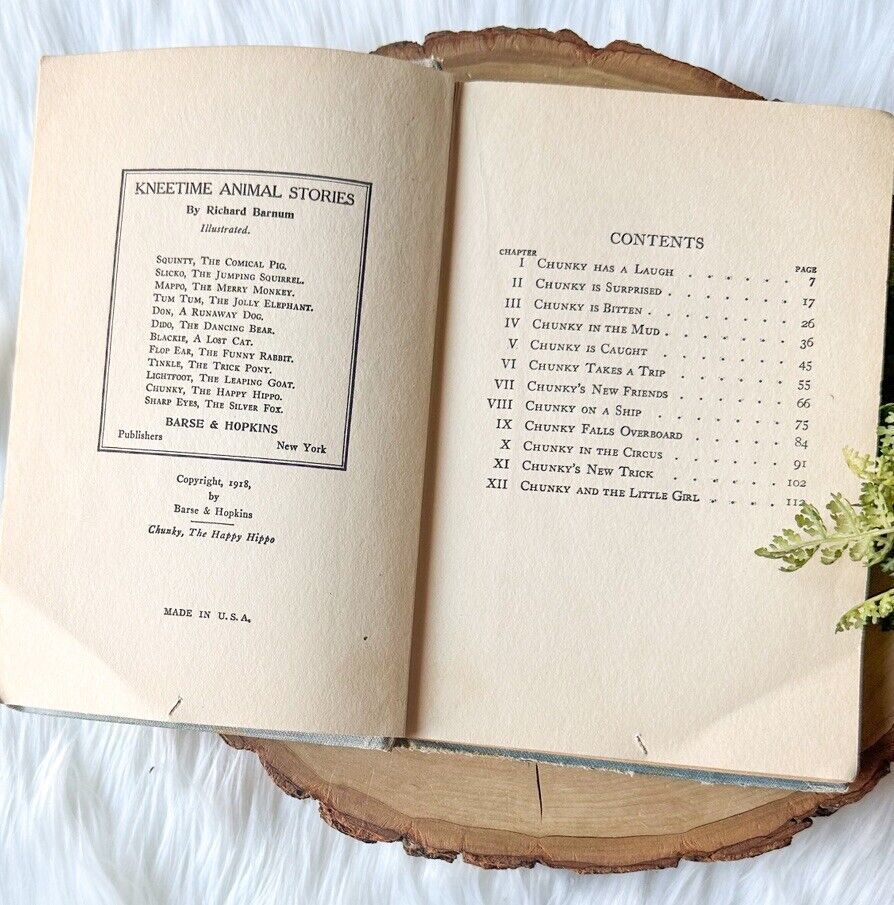 KNEETIME ANIMAL STORIES
By Richard Barnum
Illustrated.
SQUINTY, THE COMICAL PIG.
SLICKO, THE JUMPING SQUIRREL.
MAPPO, THE MERRY MONKEY.
TUM TUM, THE JOLLY ELEPHANT.
DON, A RUNAWAY DOG.
DIDO, THE DANCING BEAR.
BLACKIE, A LOST CAT.
FLOP EAR, THE FUNNY RABBIT.
TINKLE, THE TRICK PONY.
LIGHTFOOT, THE LEAPING GOAT.
CHUNKY, THE HAPPY HIPPO.
SHARP EYES, THE SILVER FOX.
BARSE & HOPKINS
Publishers New York
Copyright, 1918,
by
Barse & Hopkins
Chunky, The Happy Hippo
MADE IN U. S. A.
CONTENTS
CHAPTER PAGE
I CHUNKY HAS A LAUGH . . . . . . 7
II CHUNKY IS SURPRISED . . . . . . 17
III CHUNKY IS BITTEN . . . . . . . 26
IV CHUNKY IN THE MUD . . . . . . 36
V CHUNKY IS CAUGHT . . . . . . 45
VI CHUNKY TAKES A TRIP . . . . . 55
VII CHUNKY'S NEW FRIENDS . . . . . 66
VIII CHUNKY ON A SHIP . . . . . . 75
IX CHUNKY FALLS OVERBOARD . . . . . 84
X CHUNKY IN THE CIRCUS . . . . . 91
XI CHUNKY'S NEW TRICK . . . . . 102
XII CHUNKY AND THE LITTLE GIRL . . . . 112